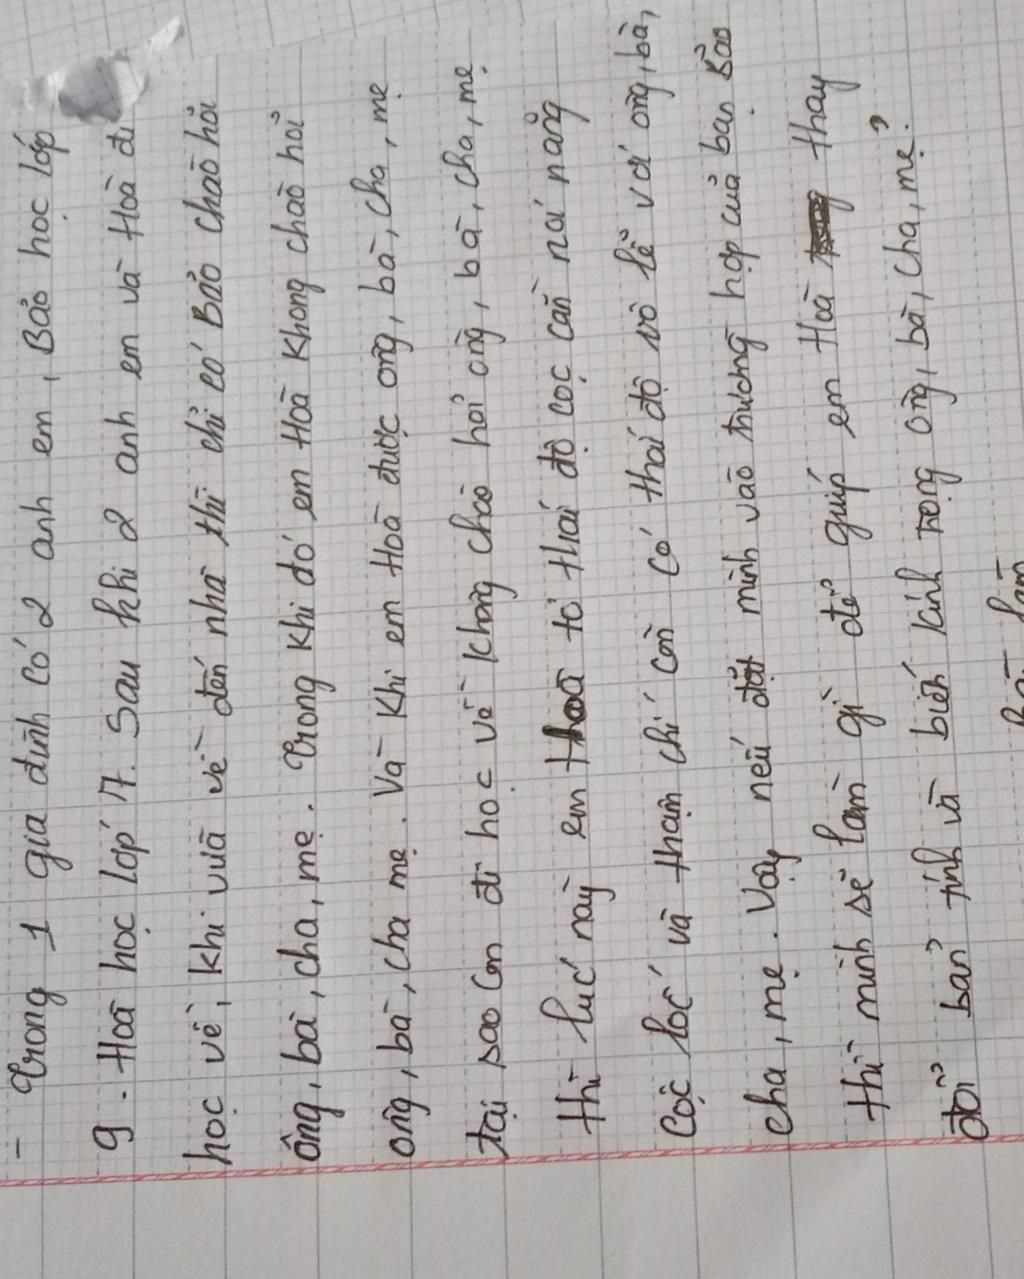 - Trong 1 gia đình có 2 anh em, Bảo học lớp
9. Hoà học lớp 7. Sau khi 2 anh em và Hoà đi
học về, khi vừa về đến nhà thì chỉ có Bảo chào hỏi
ông, bà, cha, mẹ. Trong khi đó em Hoà không chào hỏi
ông, bà, cha mẹ. Và khi em Hoà được ông, bà, cha, mẹ
tại sao con đi học về không chào hỏi ông, bà, cha, mẹ.
thì lúc này em tỏ thái độ cọc cằn nói năng
cọc lóc và thậm chí còn có thái độ vô lễ với ông, bà,
cha, mẹ. Vậy nếu đặt mình vào trường hợp của bạn Bảo
thì mình sẽ làm gì để giúp em Hoà thay
đổi bản tính và biết kính trọng ông, bà, cha, mẹ?